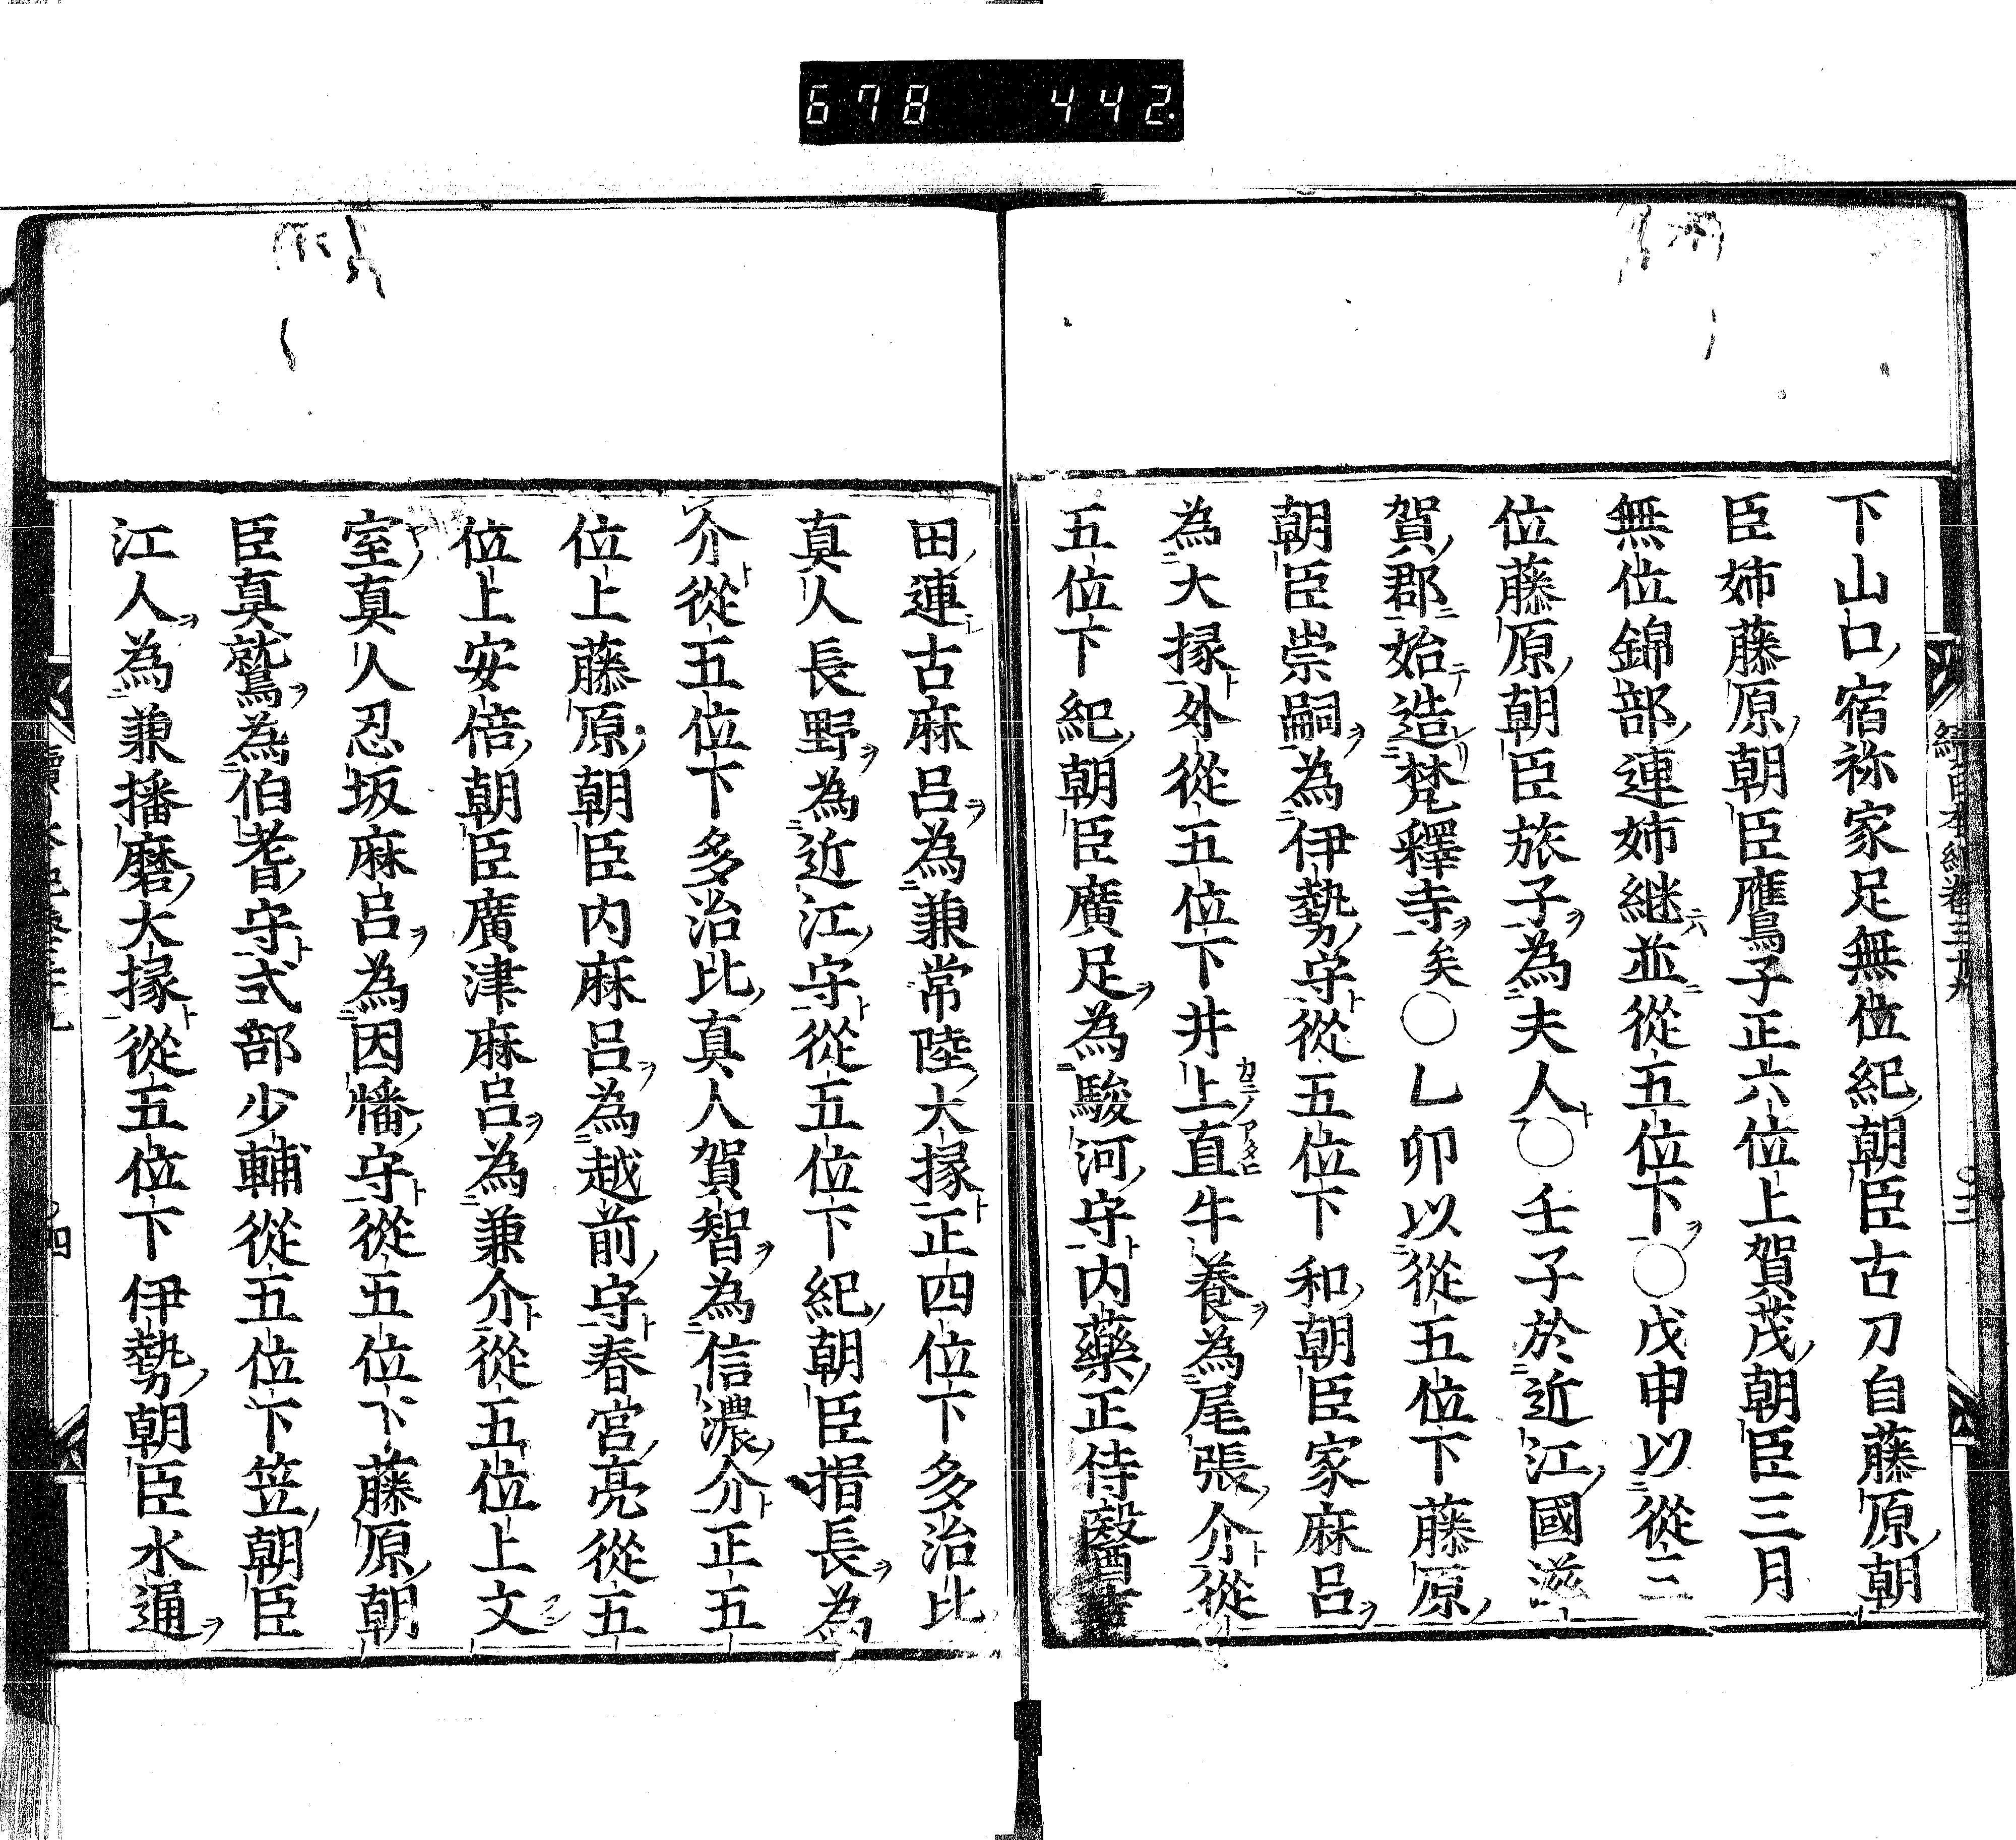 678 442
下山口宿祢家足無位紀朝臣古刀自藤原朝
臣姉藤原朝臣鷹子正六位上賀茂朝臣三月
無位錦部連姉継並從五位下○戊申以從三
位藤原朝臣旅子為夫人○壬子於近江國滋
賀郡始造梵釋寺矣○乙卯以從五位下藤原
朝臣崇嗣為伊勢守從五位下和朝臣家麻呂
為大掾外從五位下井上直牛養為尾張介從
五位下紀朝臣廣足為駿河守内藥正侍醫
田連古麻呂為兼常陸大掾正四位下多治比
真人長野為近江守從五位下紀朝臣揖長為
介從五位下多治比真人賀智為信濃介正五
位上藤原朝臣内麻呂為越前守春宮亮從五
位上安倍朝臣廣津麻呂為兼介從五位上文
室真人忍坂麻呂為因幡守從五位下藤原朝
臣真鷲為伯耆守式部少輔從五位下笠朝臣
江人為兼播磨大掾從五位下伊勢朝臣水通